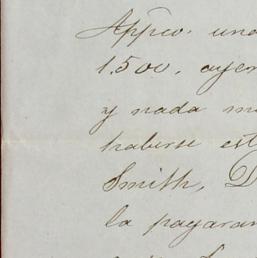 Appco. una
1.500, ayer
y nada m
haberse est
Smith, D
la pagaran